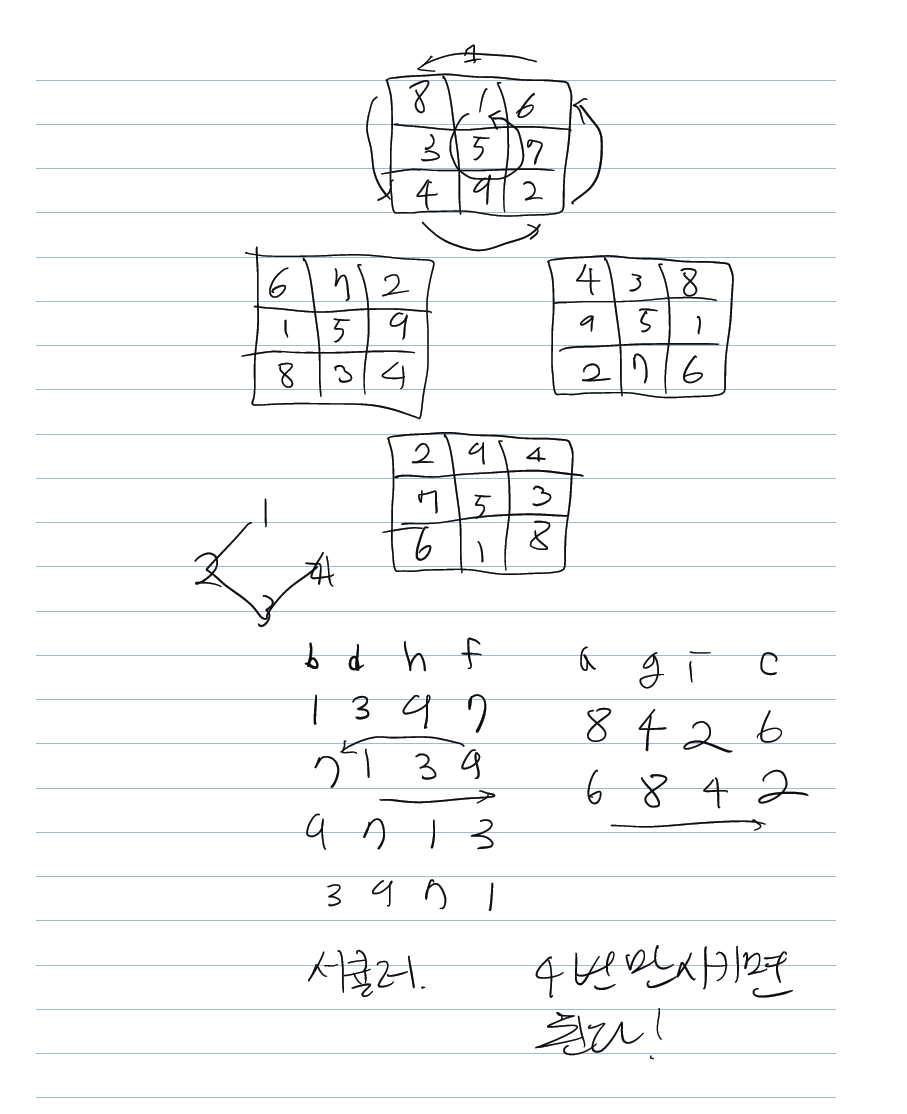 1
8 1 6
3 5 7
4 9 2
6 7 2
1 5 9
8 3 4
4 3 8
9 5 1
2 7 6
2 9 4
7 5 3
6 1 8
1
2 4
3
b d h f
1 3 9 7
7 1 3 9
9 7 1 3
3 9 7 1
a g i c
8 4 2 6
6 8 4 2
서큘러.
4번만 시키면
된다!